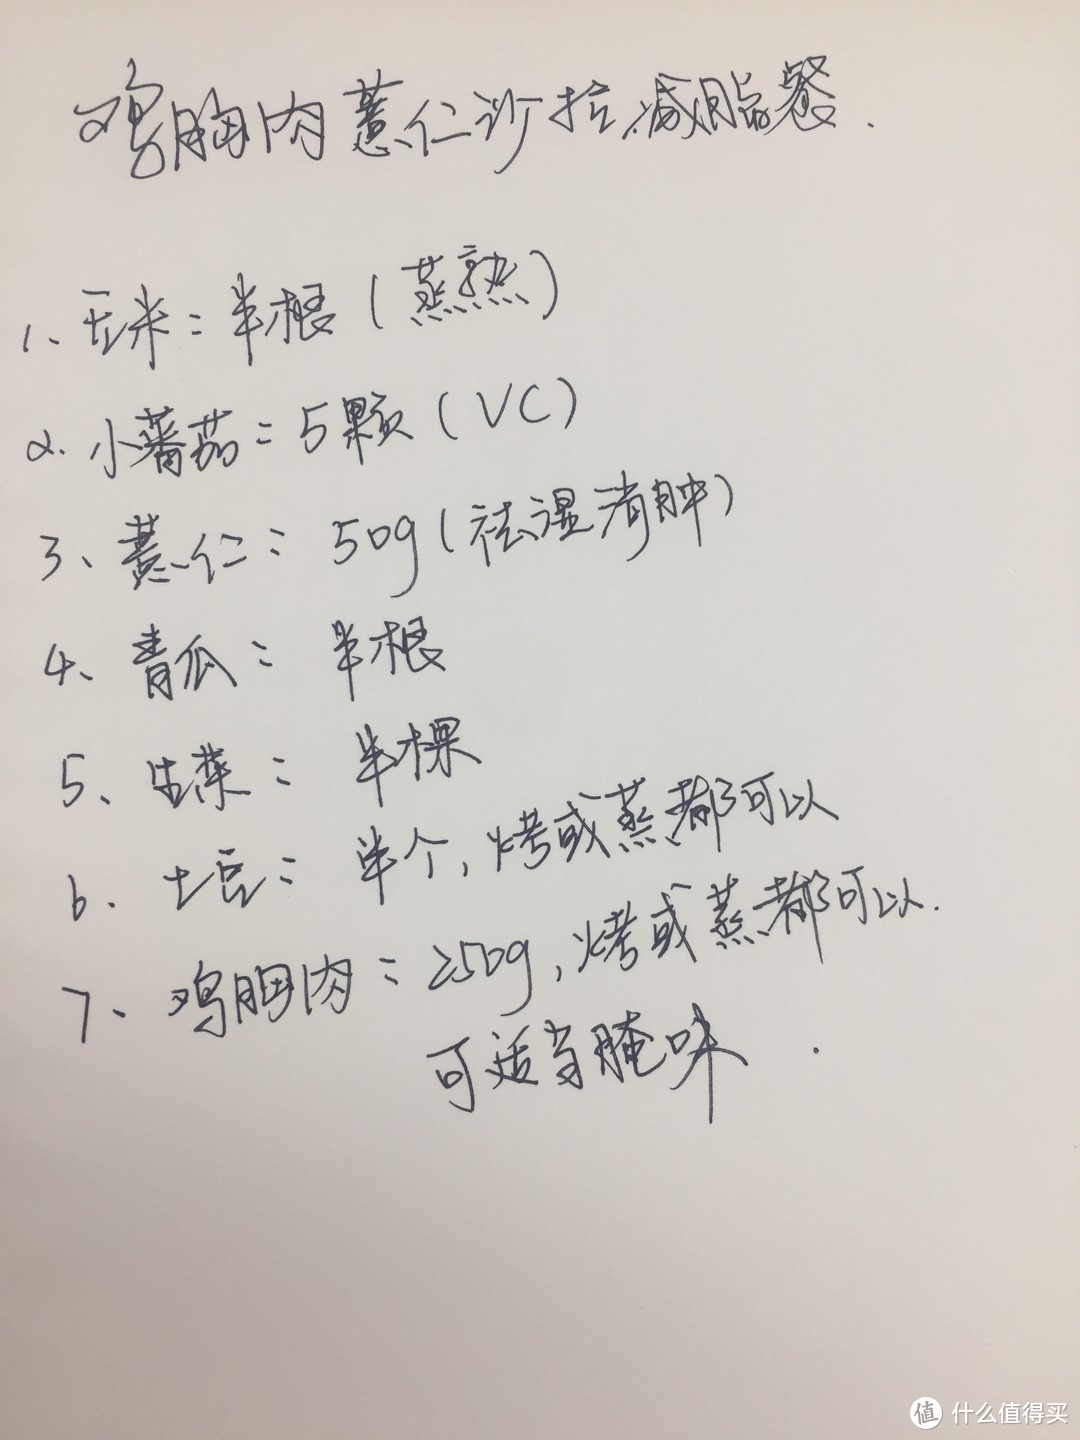 鸡胸肉薏仁沙拉减脂餐.
1、玉米：半根（蒸熟）
2、小蕃茄：5颗（VC）
3、薏仁：50g（祛湿消肿）
4、青瓜：半根
5、生菜：半棵
6、土豆：半个，烤或蒸都可以
7、鸡胸肉：250g，烤或蒸都可以.
可适当腌味.
值 什么值得买